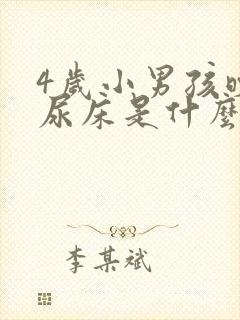 4歲小男孩晚
尿床是什麼
李某斌